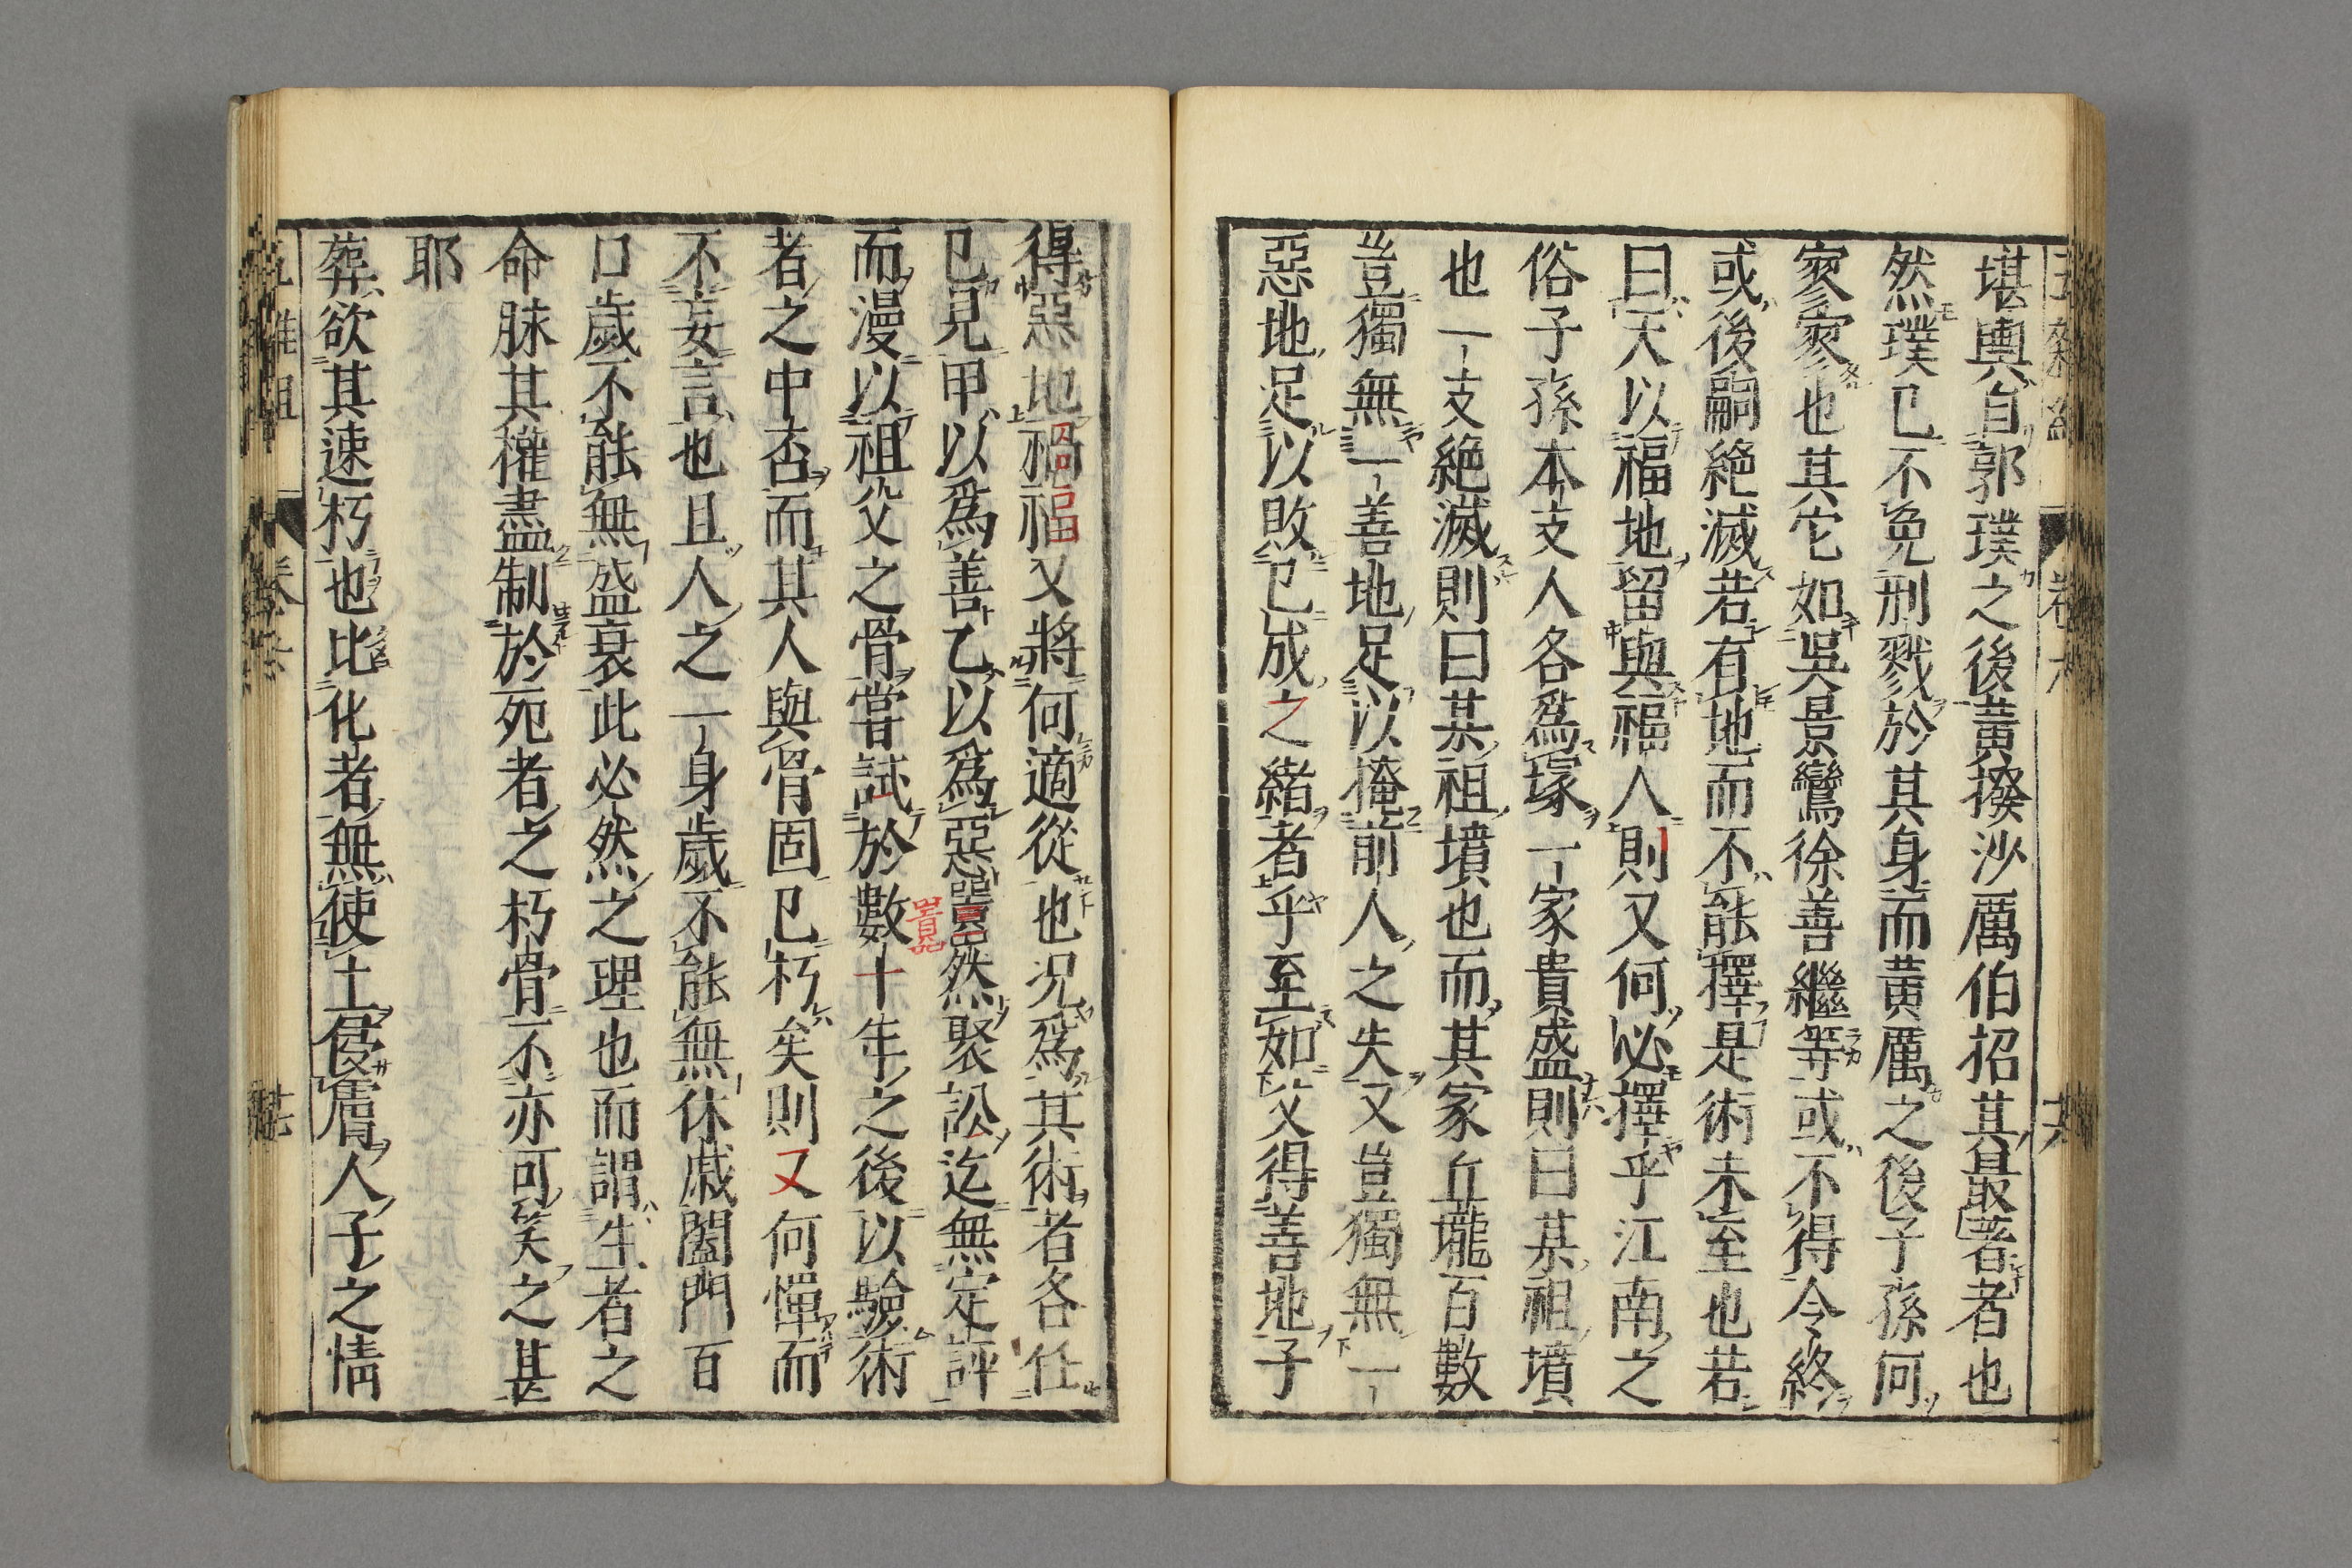 堪輿自郭璞之後黃撥沙厲伯招其最著者也
然璞已不免刑戮於其身而黃厲之後子孫何
寥寥也其它如吳景鸞徐善繼等或不得令終
或後嗣絕滅若有地而不能擇是術未至也若
曰天以福地留與福人則又何必擇乎江南之
俗子孫本支人各爲塚一家貴盛則曰某祖墳
也一支絕滅則曰某祖墳也而其家丘壠百數
豈獨無一善地足以掩前人之失又豈獨無一
惡地足以敗已成之緒者乎至如父得善地子
得惡地禍福又將何適從也況爲其術者各任
己見甲以爲善乙以爲惡嚣然聚訟迄無定評
而漫以祖父之骨嘗試於數十年之後以驗術
者之中否而其人與骨固已朽矣則又何憚而
不妄言也且人之一身歲不能無休戚闔門百
口歲不能無盛衰此必然之理也而謂生者之
命脉其權盡制於死者之朽骨不亦可笑之甚
耶
葬欲其速朽也比化者無使土侵膚人子之情